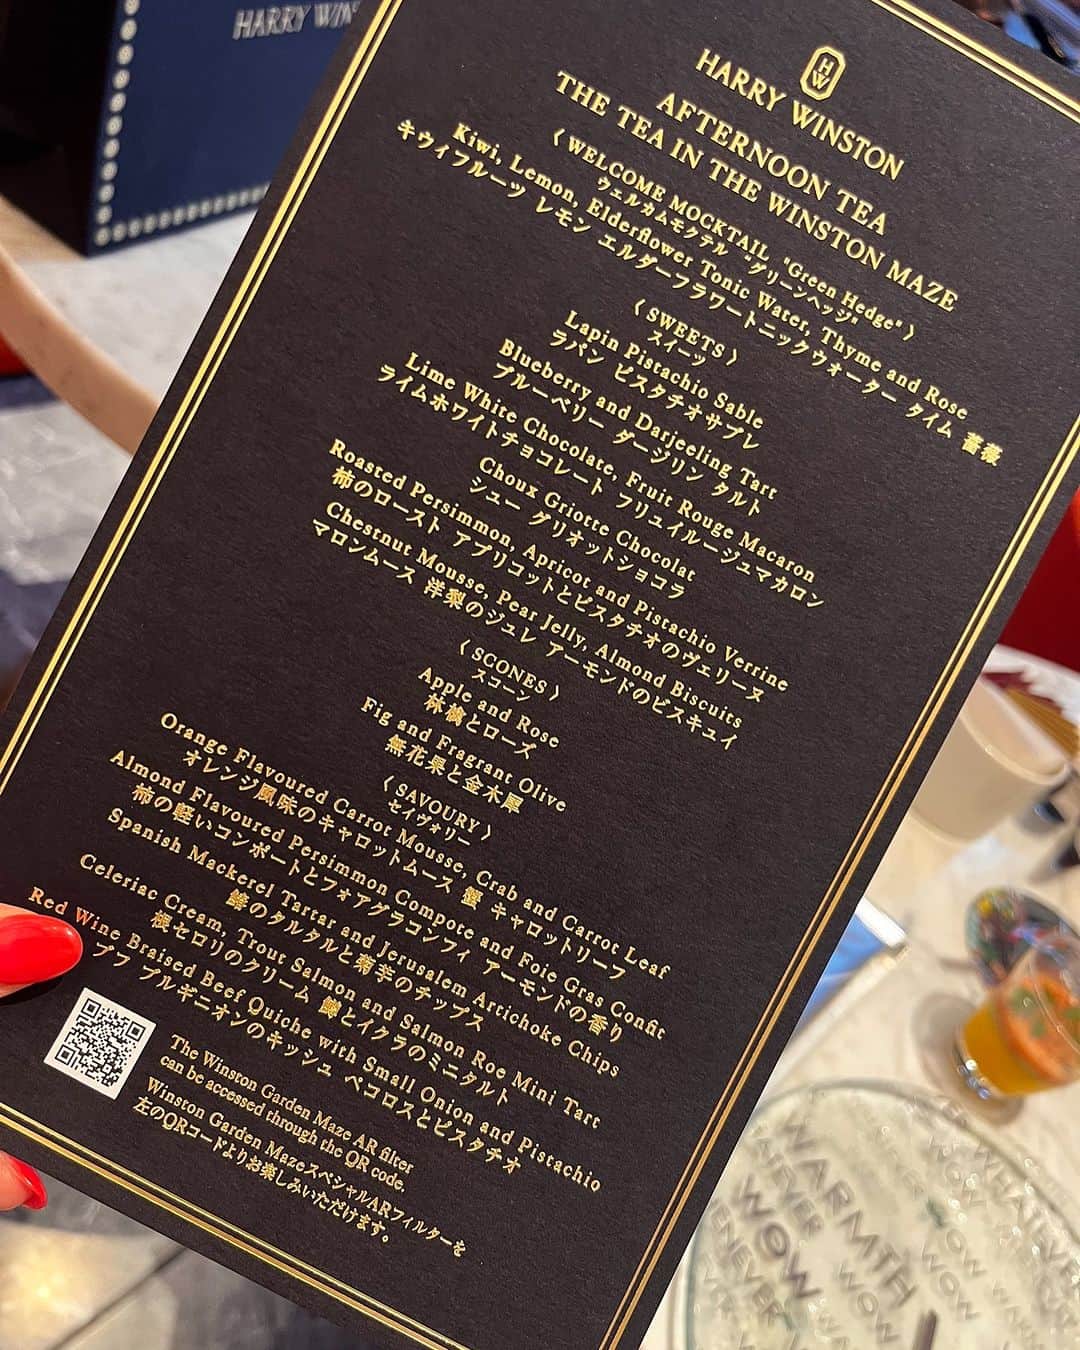 HARRY WINSTON
AFTERNOON TEA
THE TEA IN THE WINSTON MAZE
〈 WELCOME MOCKTAIL "Green Hedge" 〉
ウェルカムモクテル "グリーンヘッジ"
Kiwi, Lemon, Elderflower Tonic Water, Thyme and Rose
キウイフルーツ レモン エルダーフラワートニックウォーター タイム 薔薇
〈 SWEETS 〉
スイーツ
Lapin Pistachio Sable
ラパン ピスタチオサブレ
Blueberry and Darjeeling Tart
ブルーベリー ダージリン タルト
Lime White Chocolate, Fruit Rouge Macaron
ライムホワイトチョコレート フリュイルージュマカロン
Choux Griotte Chocolat
シュー グリオットショコラ
Roasted Persimmon, Apricot and Pistachio Verrine
柿のロースト アプリコットとピスタチオのヴェリーヌ
Chestnut Mousse, Pear Jelly, Almond Biscuits
マロンムース 洋梨のジュレ アーモンドのビスキュイ
〈 SCONES 〉
スコーン
Apple and Rose
林檎とローズ
Fig and Fragrant Olive
無花果と金木犀
〈 SAVOURY 〉
セイヴォリー
Orange Flavoured Carrot Mousse, Crab and Carrot Leaf
オレンジ風味のキャロットムース 蟹 キャロットリーフ
Almond Flavoured Persimmon Compote and Foie Gras Confit
柿の軽いコンポートとフォアグラコンフィ アーモンドの香り
Spanish Mackerel Tartar and Jerusalem Artichoke Chips
鰆のタルタルと菊芋のチップス
Celeriac Cream, Trout Salmon and Salmon Roe Mini Tart
根セロリのクリーム 鱒とイクラのミニタルト
Red Wine Braised Beef Quiche with Small Onion and Pistachio
ブフ ブルギニオンのキッシュ ペコロスとピスタチオ
The Winston Garden Maze AR filter
can be accessed through the QR code.
Winston Garden MazeスペシャルARフィルターを
左のQRコードよりお楽しみいただけます。
HARRY WIN
WARMTH
WOW
WOW
WOW